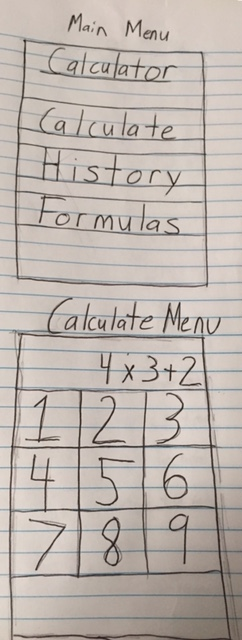 Main Menu
Calculator
Calculate
History
Formulas
Calculate Menu
4x3+2
1 2 3
4 5 6
7 8 9